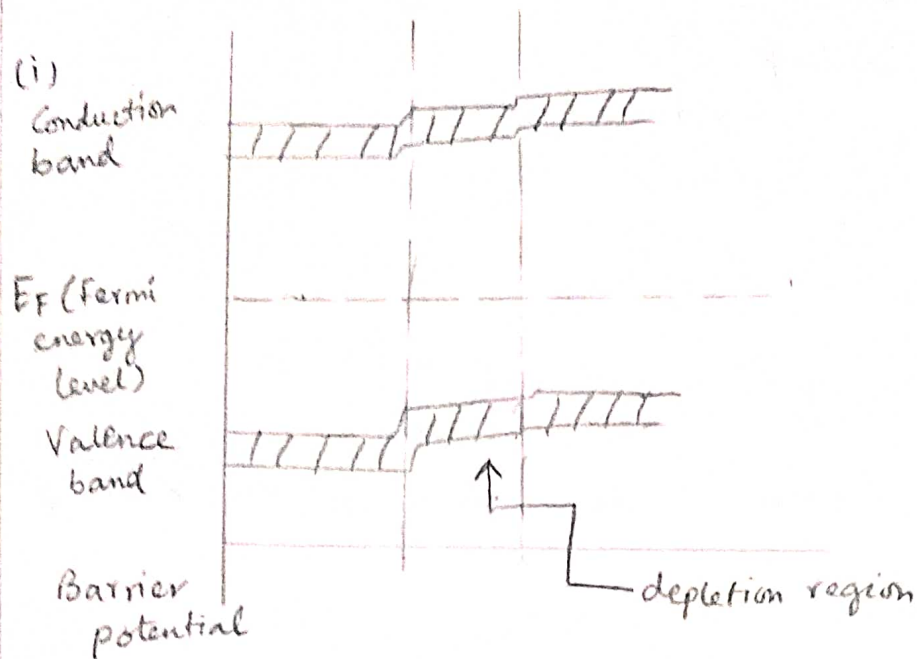 (i)
Conduction
band
EF (Fermi
energy
level)
Valence
band
Barrier
potential
depletion region